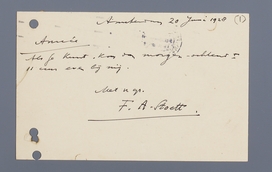 Amsterdam 20 Juni 1920 (1)
Amice
Als je kunt, kom dan morgen
je eens even bij mij.
Met n gr.
F. A.